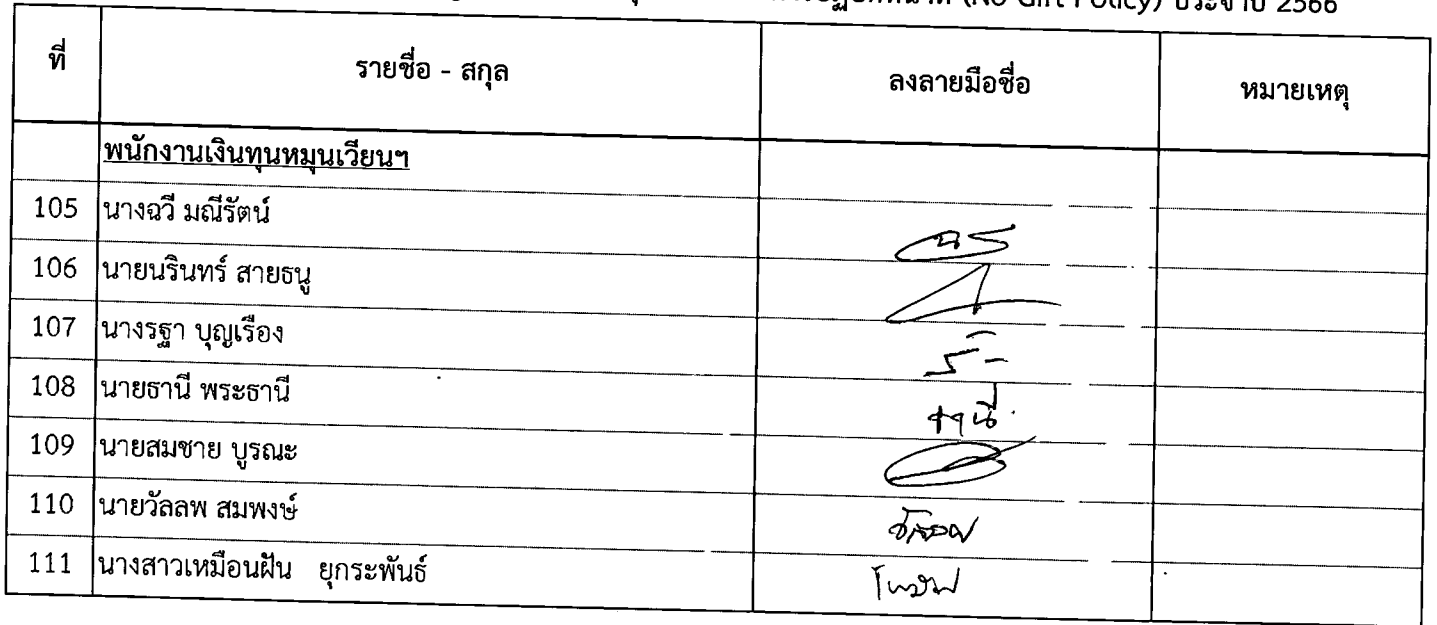 (No Gift Policy) ประจำปี 2566
ที่ รายชื่อ - สกุล ลงลายมือชื่อ หมายเหตุ
พนักงานเงินทุนหมุนเวียนฯ
105 นางฉวี มณีรัตน์
106 นายนรินทร์ สายธนู
107 นางรฐา บุญเรือง
108 นายธานี พระธานี ธานี
109 นายสมชาย บูรณะ
110 นายวัลลพ สมพงษ์
111 นางสาวเหมือนฝัน ยุกระพันธ์